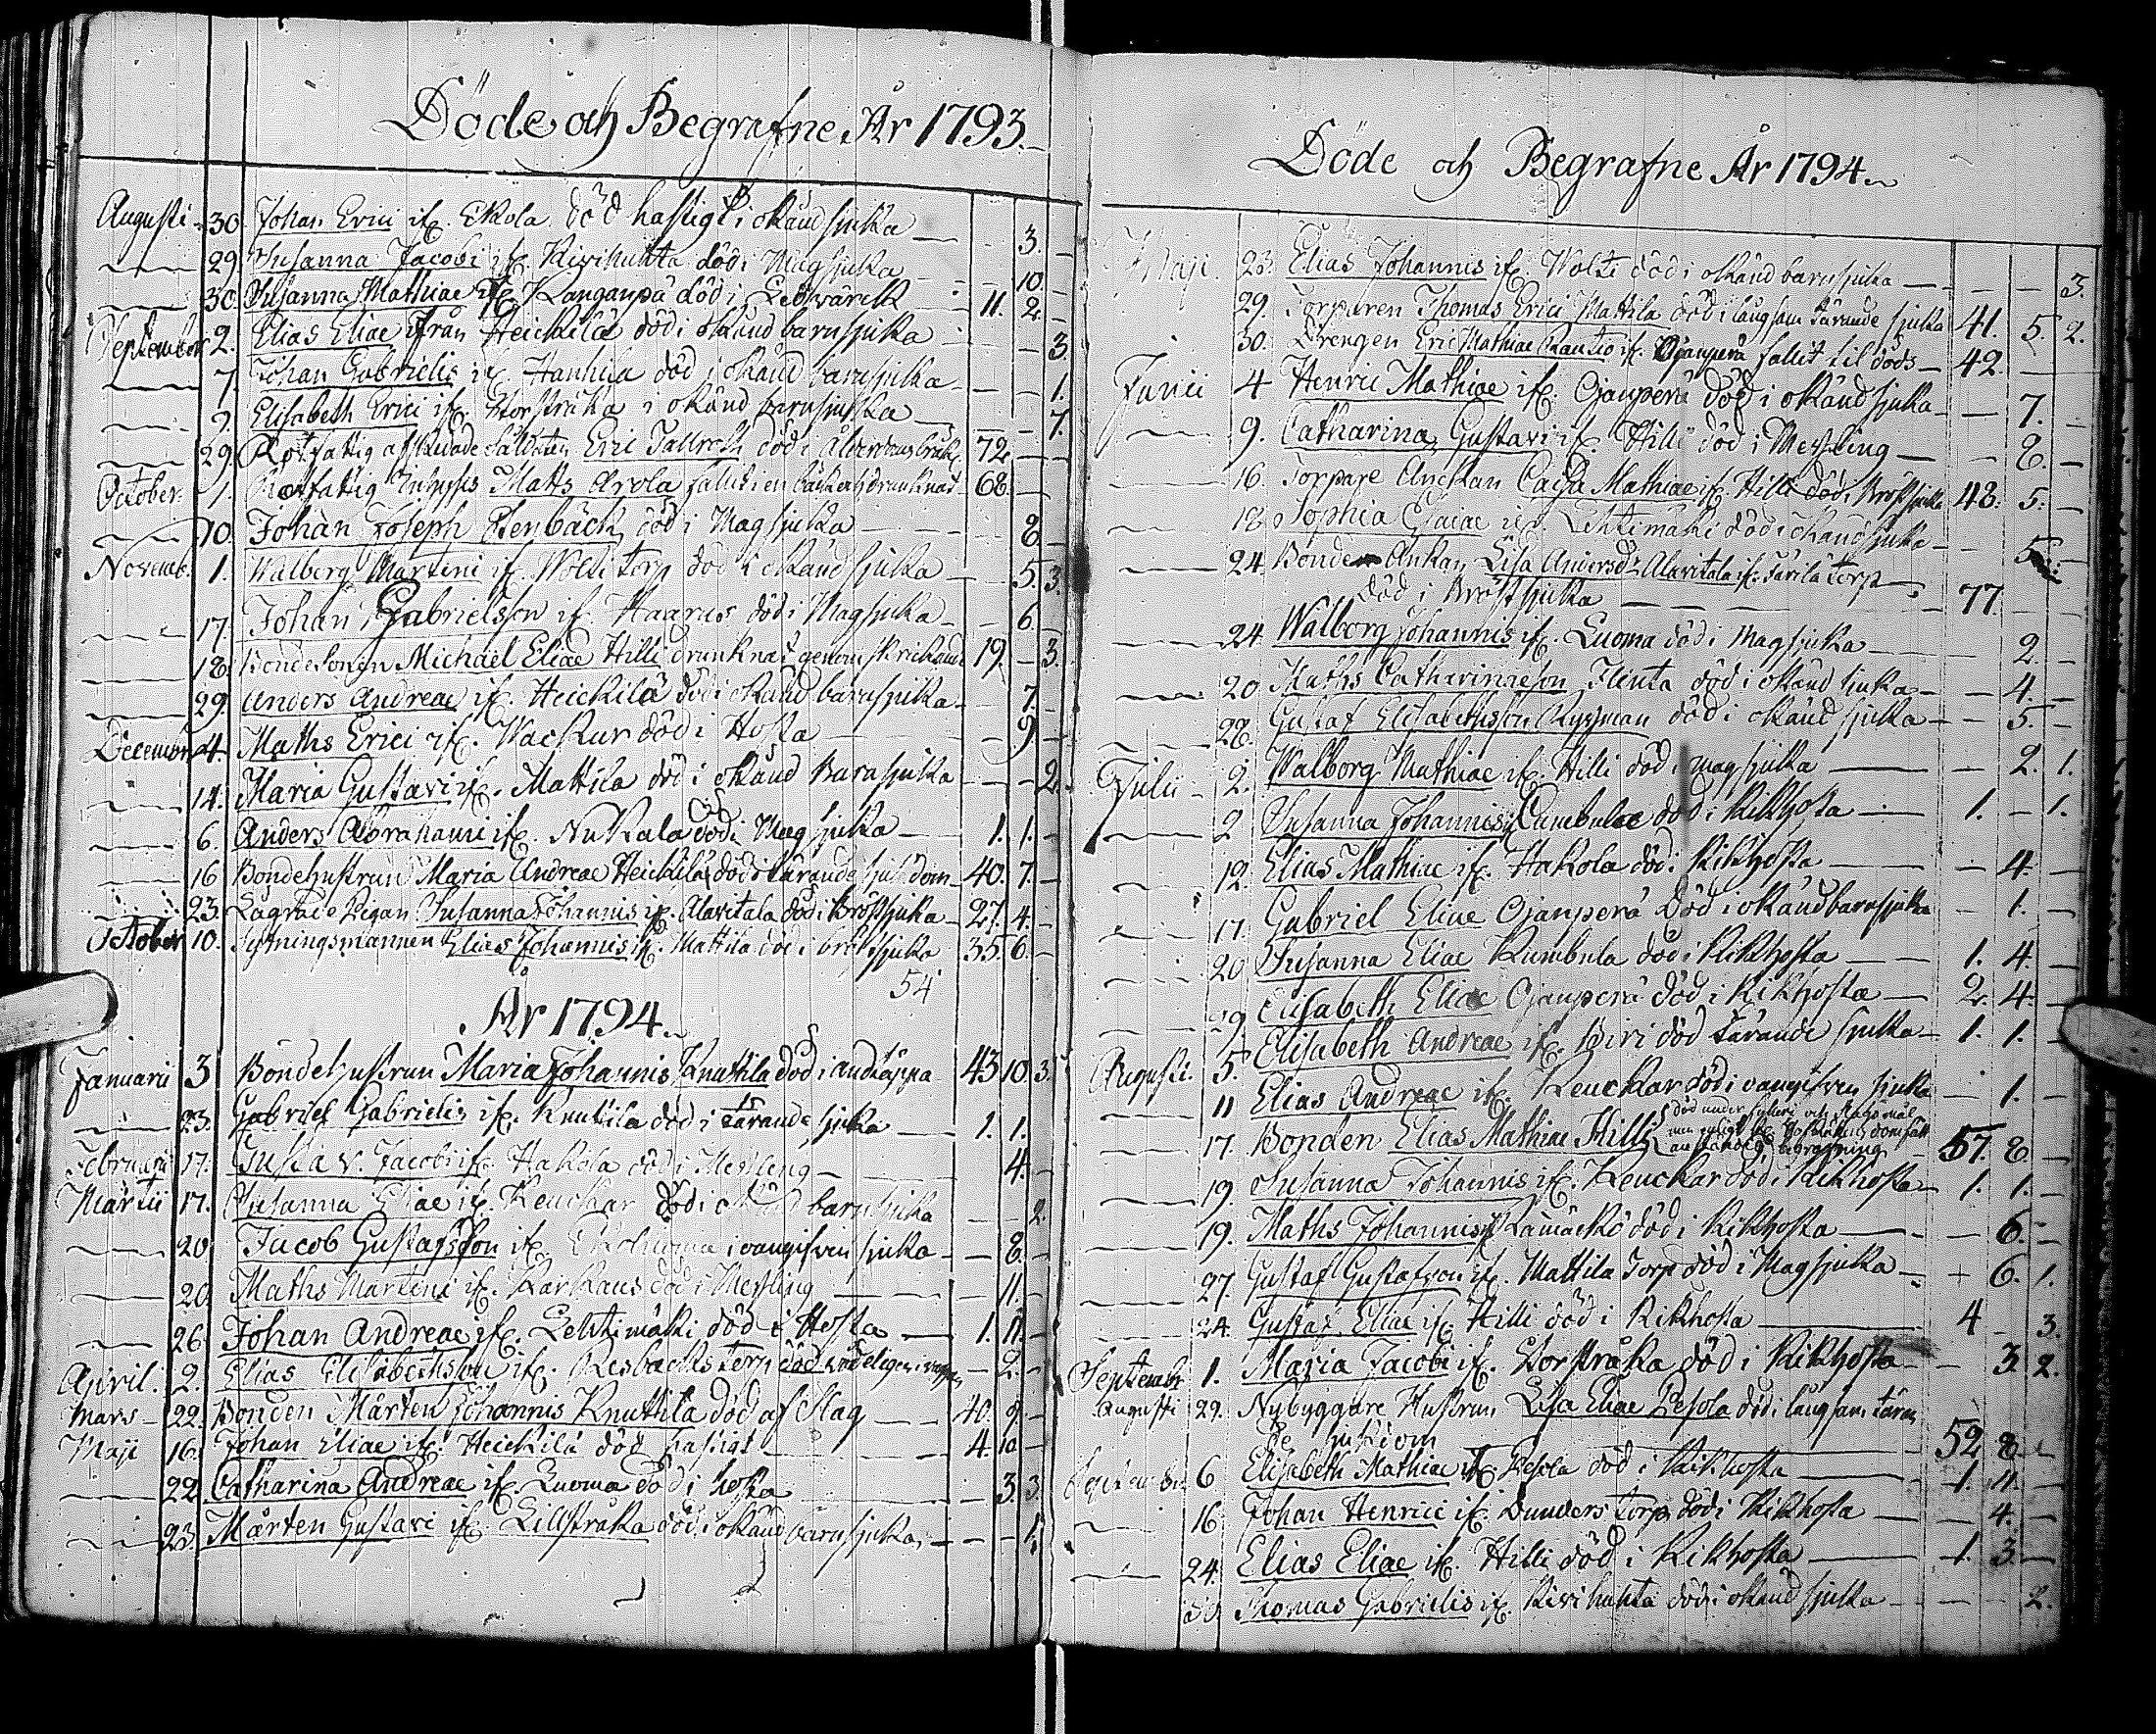 Döde och Begrafne År 1793.
Augusti 30. Johan Erici if. Ekola död hastigt i okänd sjuka — 3. —
29. Susanna Jacobi if. Kivihuhta död i Magsjuka — 10. —
30. Susanna Mathiae if. Kanganpä död i Ledwärck — 11. 2. —
September 2. Elias Eliae ifrån Heickilä död i okänd barnsjuka — 3.
7. Johan Gabrielis if. Hanhila död i okänd barnsjuka — 1.
9. Elisabeth Erici if. Storstråka i okänd barnsjuka — 7.
29. Rotfattig afskedade Soldaten Eric död i Ålderdoms 72 —
October. 1. Rotfattig Inhyses Matts Arola fallit i en bäck och drunknat 68. —
10. Johan Joseph död i Magsjuka — 8. —
Novemb. 1. Walborg Marteni if. Wolti torp död i okänd sjuka — 5. 3.
17. Johan Gabrielsson if. Haarus död i Magsjuka — 6. —
18. Bondesonen Michaël Eliae Hilli drunknat genom 19. — 3.
29. Anders Andreae if. Heickilä död i okänd barnsjuka — 7. —
December 4. Maths Erici if. Wackur död i Hosta — 9. —
14. Maria Gustavi if. Mattila död i okänd Barnsjuka — 2.
6. Anders Abrahami if. Nukala död i Magsjuka — 1. 1. —
16 Bondehustrun Maria Andreae Heickilä död i tärande sjukdom 40. 7. —
23. Lägrade Pigan Susanna Johannis if. Alavitala död i Bröstsjuka 27. 4. —
October 10. Sytningsmannen Elias Johannis if. Mattila död i bröstsjuka 35. 6. —
54
År 1794.
Januarii 3 Bondehustrun Maria Johannis Knuttila död i andtäppa 43 10. 3.
23. Gabriel Gabrielis if. Knutila död i tärande sjuka — 1. 1. —
Februarii 17. Gustav. Jacobi if. Hakola död i Messling — 4. —
Martii 17. Susanna Eliae if. Keuckar död i okänd barnsjuka — 2.
20. Jacob Gustafsson if. i oangifven sjuka — 8. —
20. Maths Marteni if. Karhaus död i Messling — 11. —
26. Johan Andreae if. Lehtimäki död i Hosta — 1. 11. —
April. 2. Elias Elisabethson if. torp död — 2. —
Mars — 22. Bonden Mårten Johannis Knuttila död af Slag — 40. 9. —
Maji 16. Johan Eliae if. Heickilä död hastigt — 4. 10. —
22. Catharina Andreae if. Luoma död i hosta — 3. 3.
23. Mårten Gustavi if. Lillstråka död i okänd barnsjuka — 1.
Döde och Begrafne År 1794.
Maji. 23. Elias Johannis if. Wolti död i okänd barnsjuka — 3.
29. Torparen Thomas Erici Mattila död i långsam tärande sjuka 41. 5. 2.
30. Drengen Eric Mathiae Rautio if. Ojanperä fallit til döds — 42. —
Junii 4 Henric Mathiae if. Ojanperä död i okänd sjuka — 7. —
9. Catharina Gustavi if. Hilli död i Messling — 8. —
16. Torpare Enckan Caisa Mathiae if. Hilli död i Bröstsjuka 48. 5. —
18. Sophia Esaiae if. Lehtimäki död i okänd sjuka — 5. —
24. Bonde Enkan Lisa Andersd:r Alavitala if. Torp
död i Bröstsjuka — 77. —
24. Walborg Johannis if. Luoma död i Magsjuka — 2. —
20 Maths Catharinneson Flinta död i okänd sjuka — 4. —
28. Gustaf Elisabethsson Ryssman död i okänd sjuka — 5. —
Julii — 2. Walborg Mathiae if. Hilli död i magsjuka — 2. 1.
2 Susanna Johannis if. Cumbulae död i Kikhosta — 1. — 1.
12. Elias Mathiae if. Hakola död i Kikhosta — 4. —
17. Gabriel Eliae Ojanperä död i okänd barnsjuka — 1. —
20 Susanna Eliae Kumbula död i Kikhosta — 1. 4. —
29 Elisabeth Eliae Ojanperä död i Kikhosta — 2. 4. —
Augusti. 5. Elisabeth Andreae if. död tärande sjuka — 1. 1. —
11 Elias Andreae if. Keuckar död i oangifven sjuka — 1. —
17. Bonden Elias Mathiae Hilli död under 57. 8. —
19. Susanna Johannis if. Keuckar död i Kikhosta — 1. 1. —
19. Maths Johannis if. död i Kikhosta — 6. —
27. Gustaf Gustafson if. Mattila Torp död i Magsjuka — 6. 1.
24. Gustaf Eliae if. Hilli död i Kikhosta — 4 — 3.
Septembr 1. Maria Jacobi if. Storstråka död i Kikhosta — 3 2.
Augusti 29. Nybyggare Hustrun Lisa Eliae Pesola död i långsam täran
de sjukdom — 52 8. —
September 6 Elisabeth Mathiae if. Pesola död i Kikhosta — 1. 11. —
16 Johan Henrici if. Dunders torp död i Kikhosta — 4. —
24. Elias Eliae if. Hilli död i Kikhosta — 1. 3. —
30 Thomas Gabrielis if. Kivihuhta död i okänd sjuka — 2.